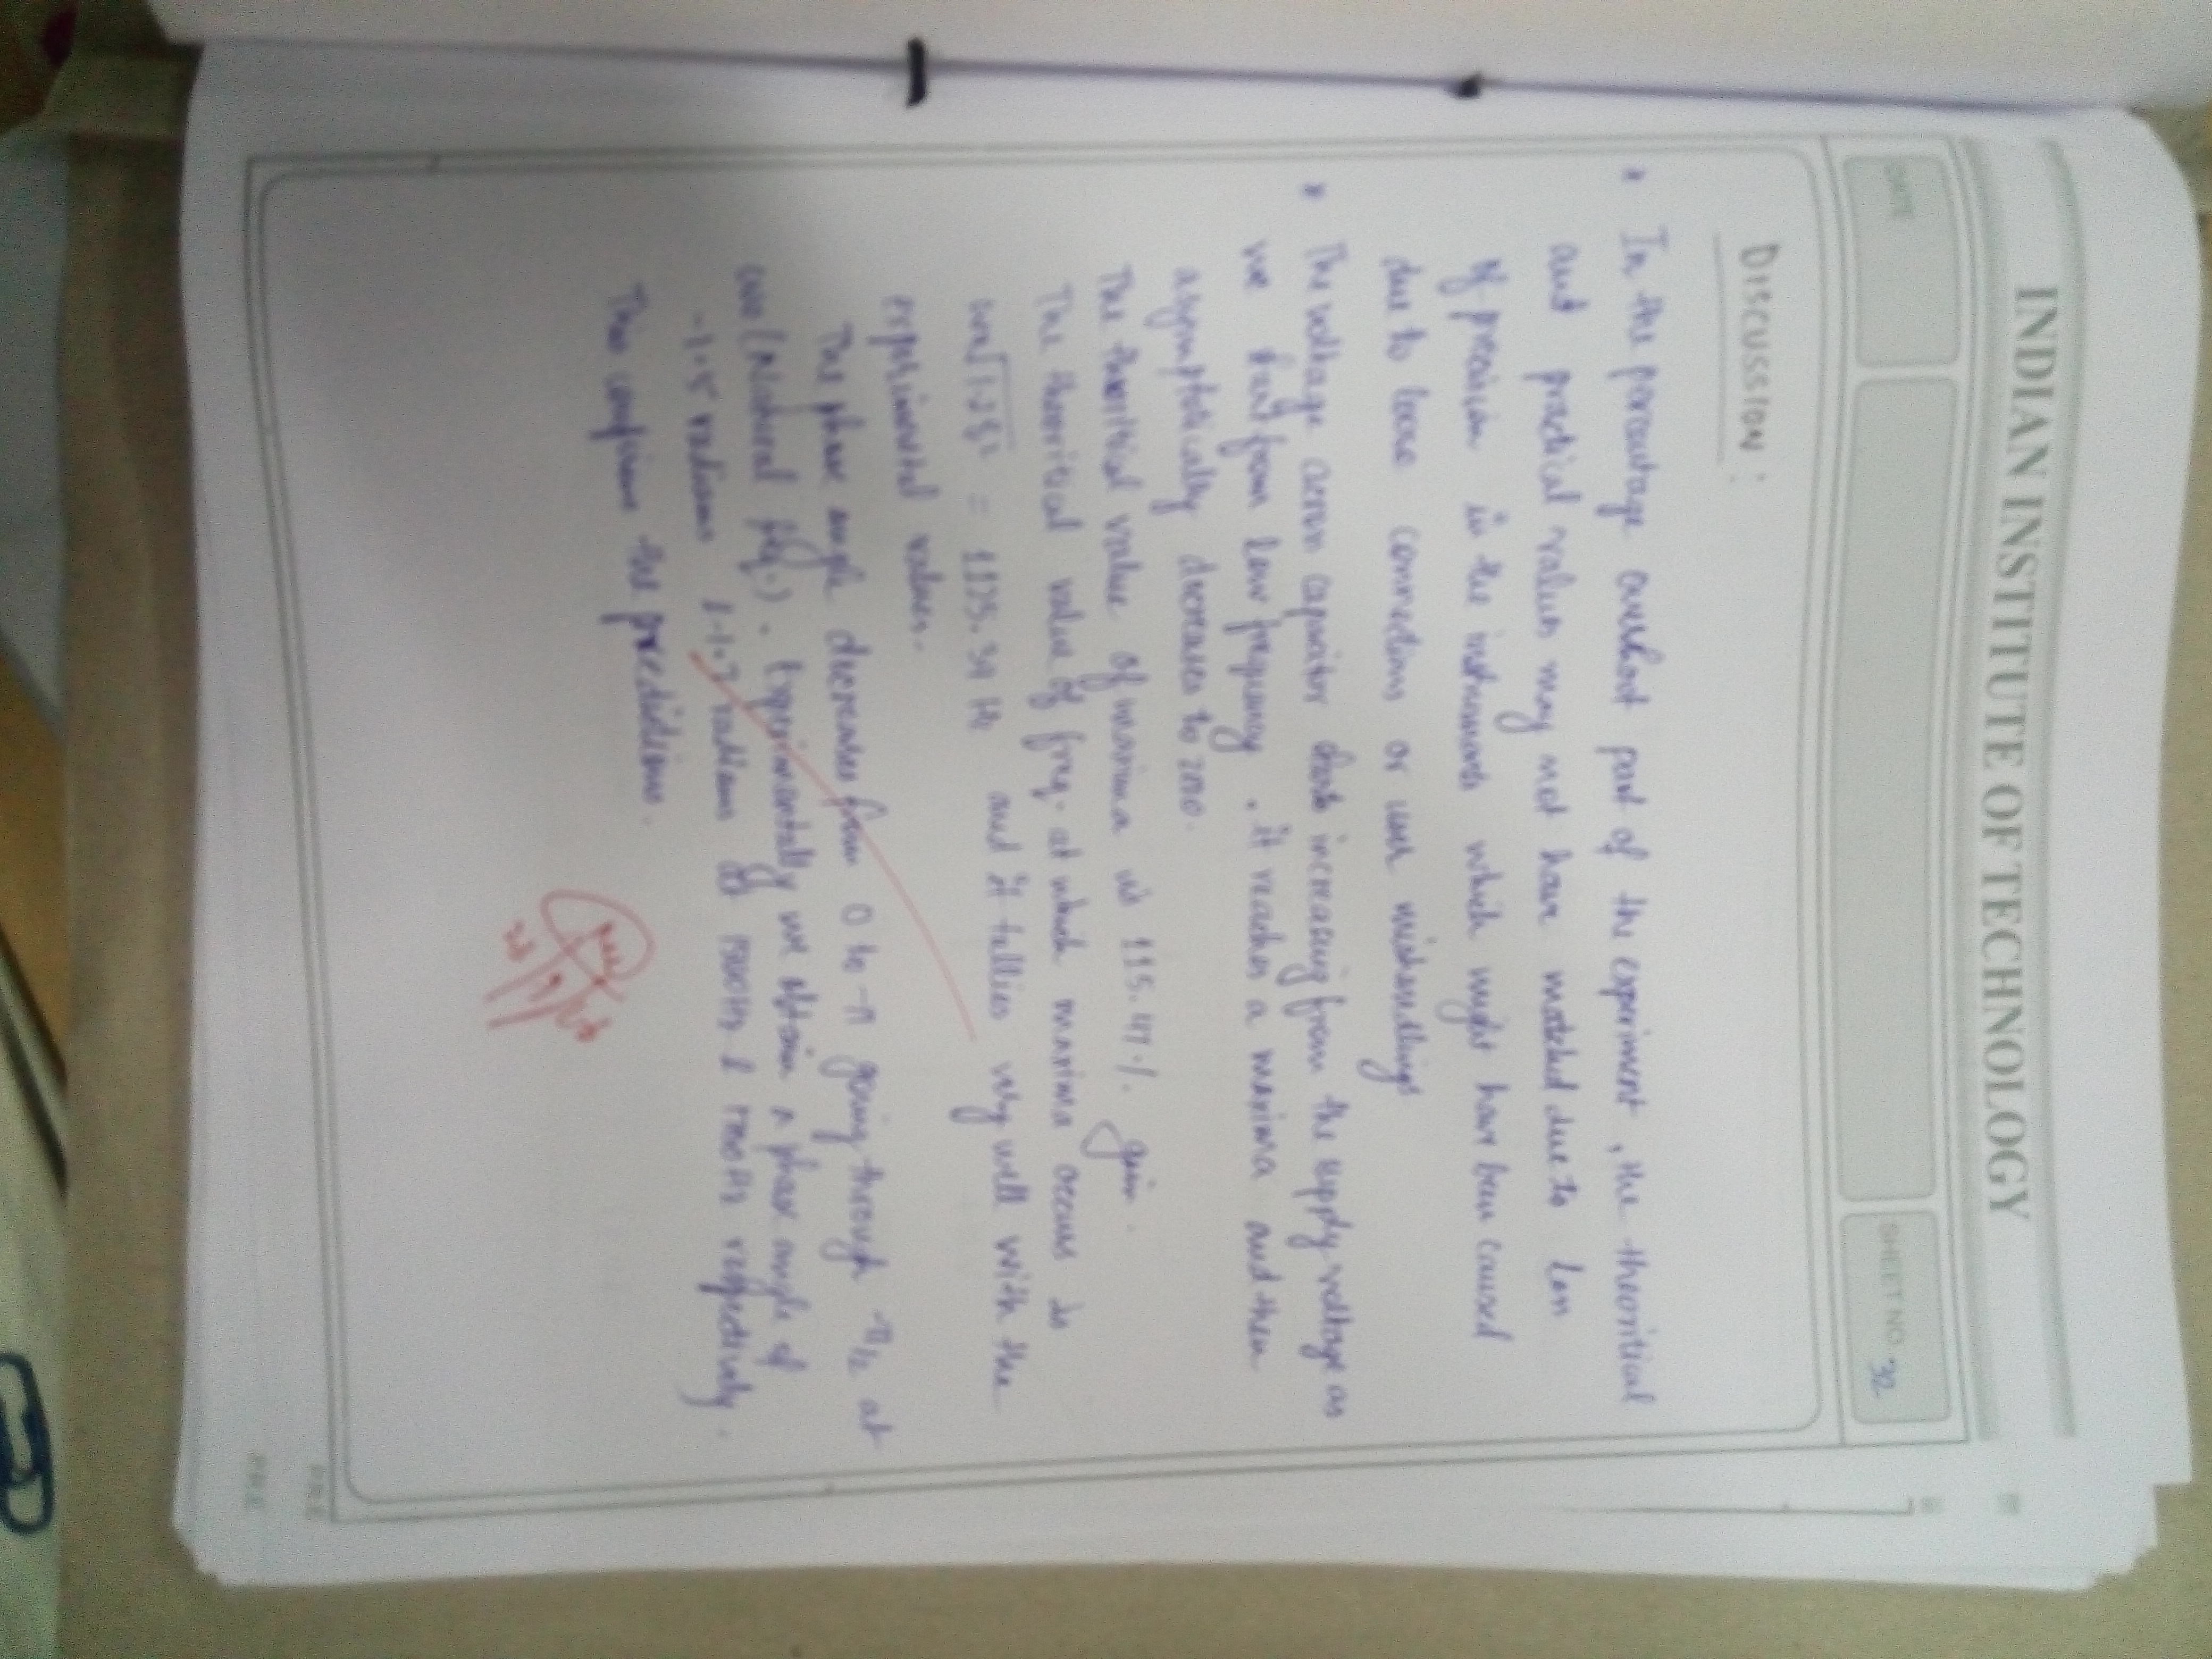 INDIAN INSTITUTE OF TECHNOLOGY
DATE
SHEET NO. 32
DISCUSSION :
* In the percentage overshoot part of the experiment , the theoritical
and practical values may not have matched due to loss
of precision in the instruments which might have been caused
due to loose connections or user mishandlings
* The voltage across capacitor starts increasing from the supply voltage as
we start from low frequency . it reaches a maxima and then
asymptotically decreases to zero.
The theoritical value of maxima is 115.47 %. gain.
The theoritical value of freq. at which maxima occurs is
√1-2ξ² = 1125.39 Hz and it tallies very well with the
experimental values.
The phase angle decreases from 0 to -π going through -π/2 at
(Natural freq.) . Experimentally we obtain a phase angle of
-1.5 radians & -1.7 radians at 1500Hz & 1700Hz respectively.
This confirms the predictions.
P.R.E
P.R.E